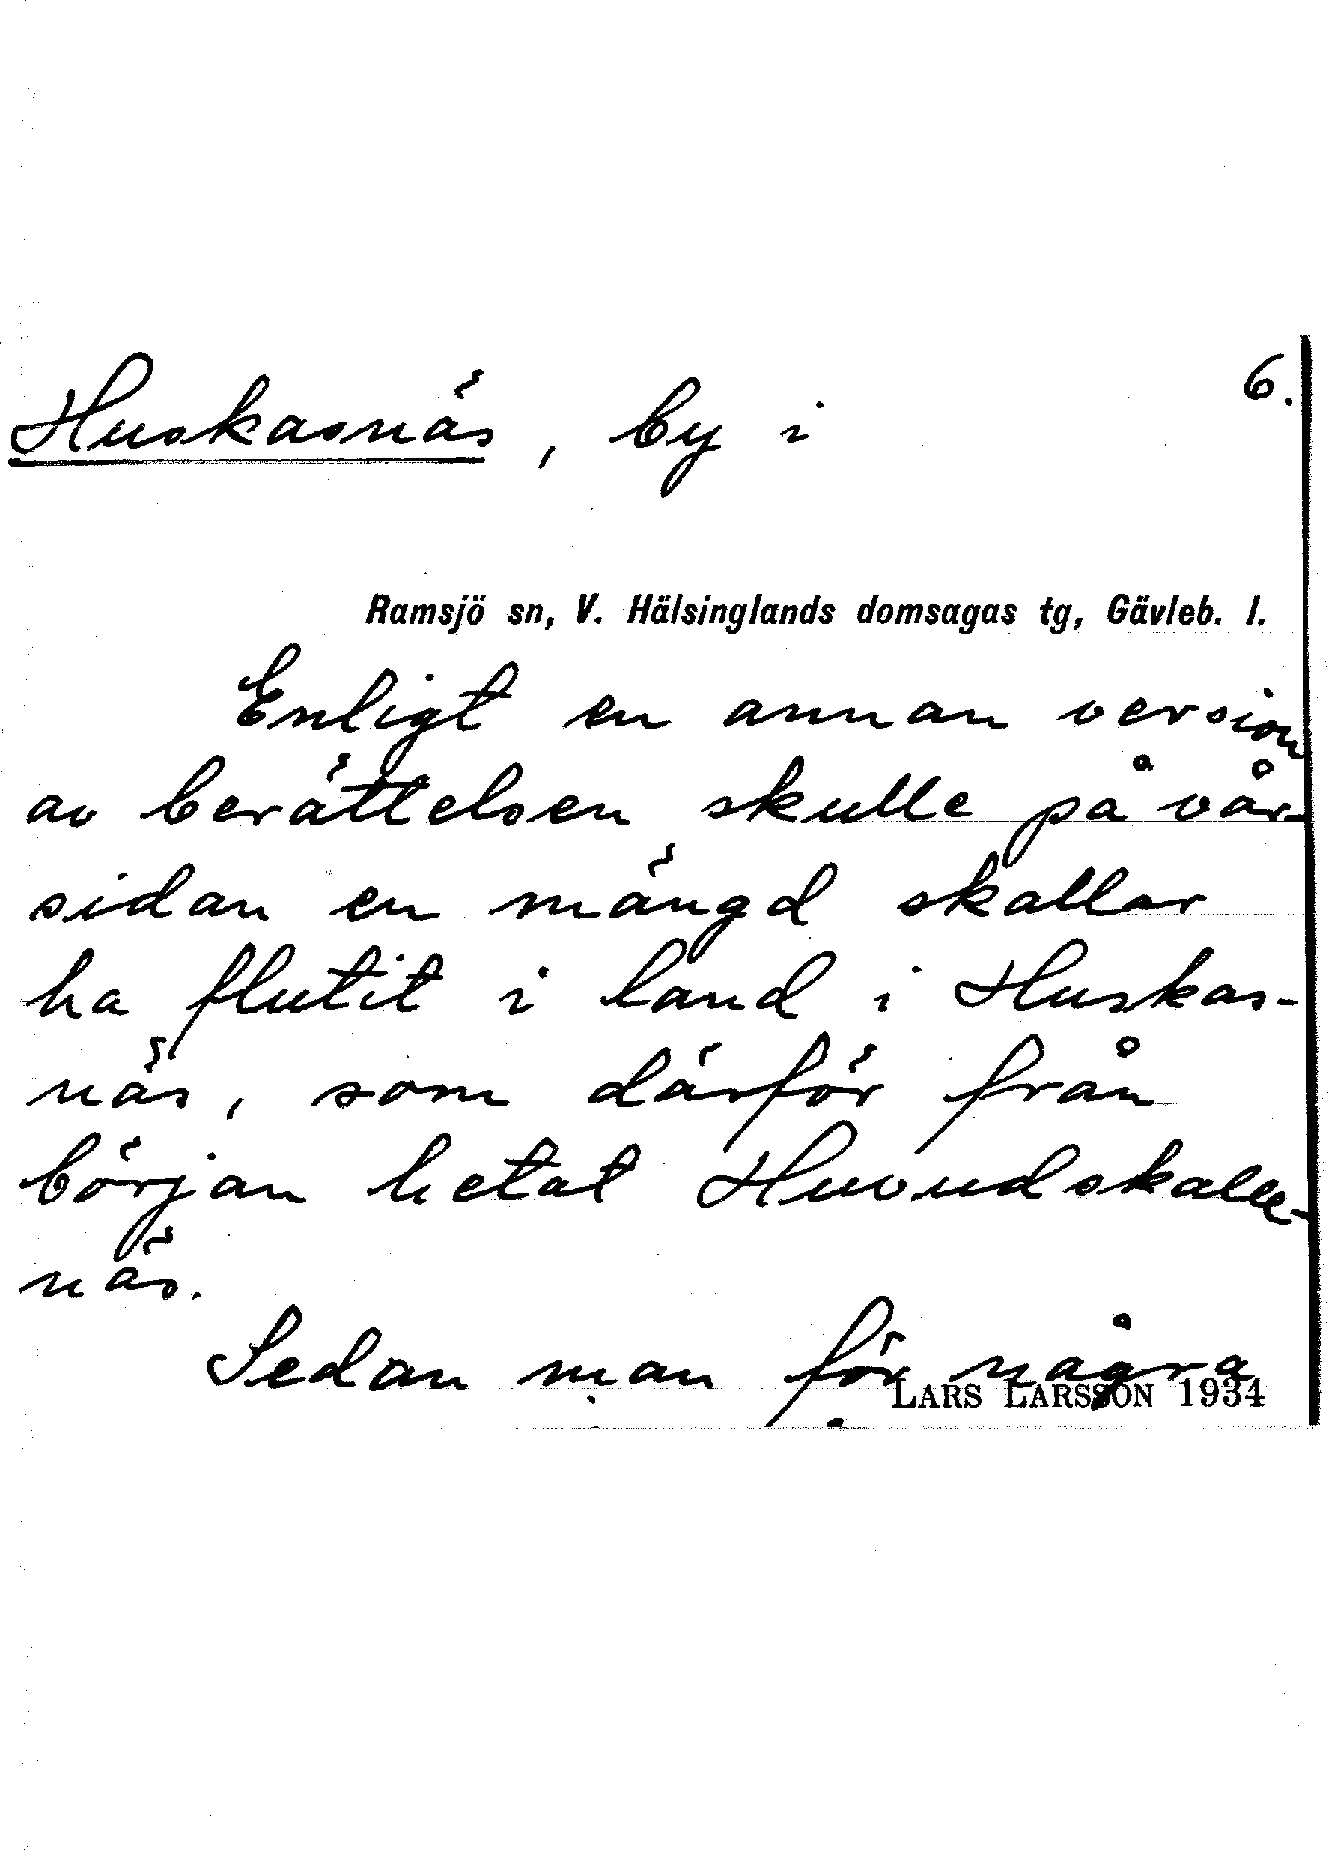 6.
Huskasnäs, by i
Ramsjö sn, V. Hälsinglands domsagas tg, Gävleb. l.
Enligt en annan version
av berättelsen skulle på vår-
sidan en mängd skallar
ha flutit i land i Huskas-
näs, som därför från
början hetat Huvudskalle-
näs.
Sedan man för några
LARS LARSSON 1934